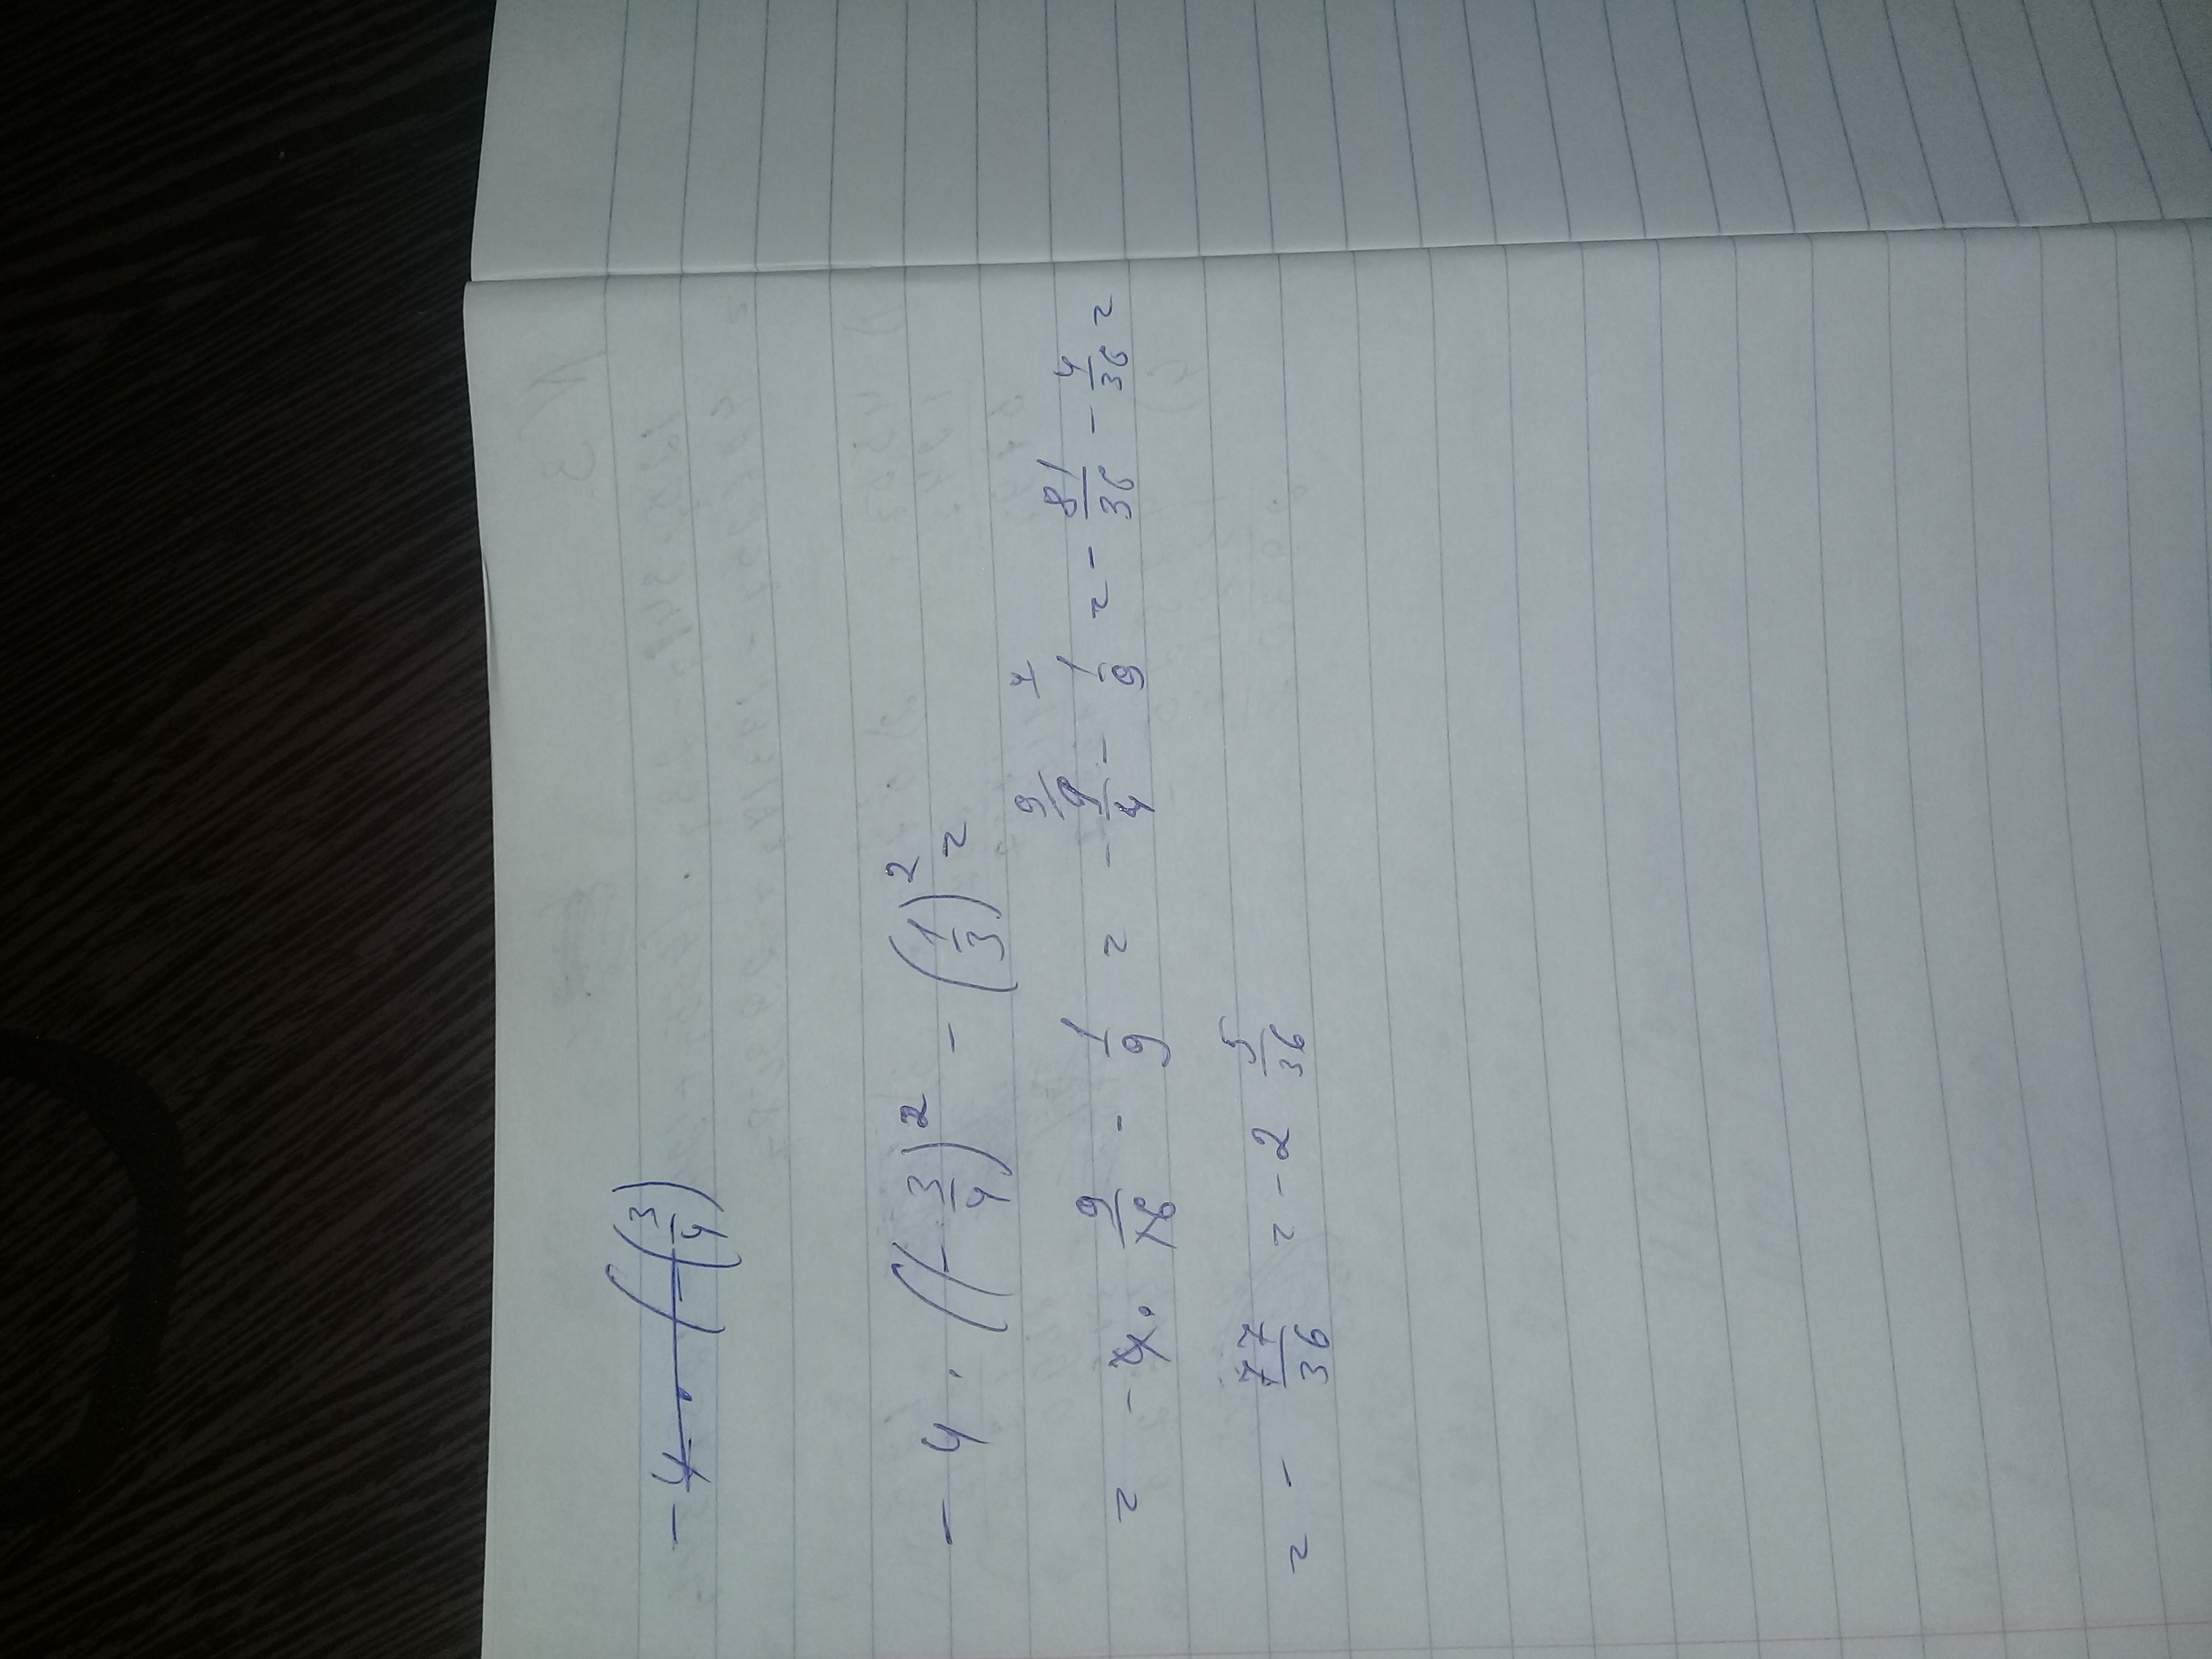 -4 · (-(3/4)
-4 · ((-3/4)² - (1/3)² =
= -4 · 9/16 - 1/9 = -9/4 - 1/9 = -81/36 - 4/36 =
= -77/36 = -2 5/36